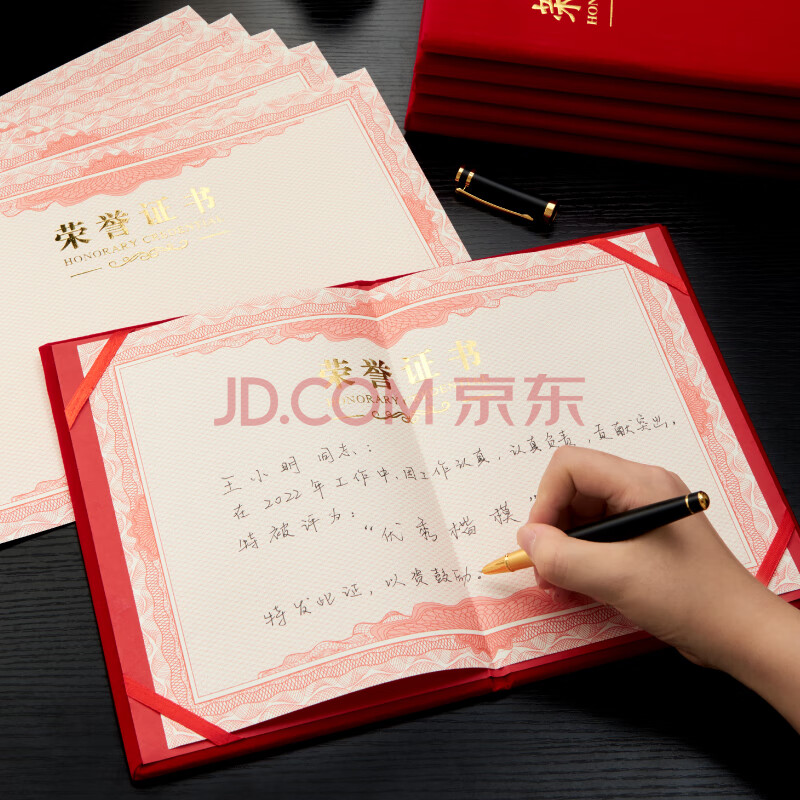 荣
HON
荣誉证书
HONORARY
荣誉证书
HONORARY
JD.COM 京东
王小明 同志：
在2022年工作中，因工作认真，认真负责，贡献突出，
特被评为：
“优秀楷模”
特发此证，以资鼓励。